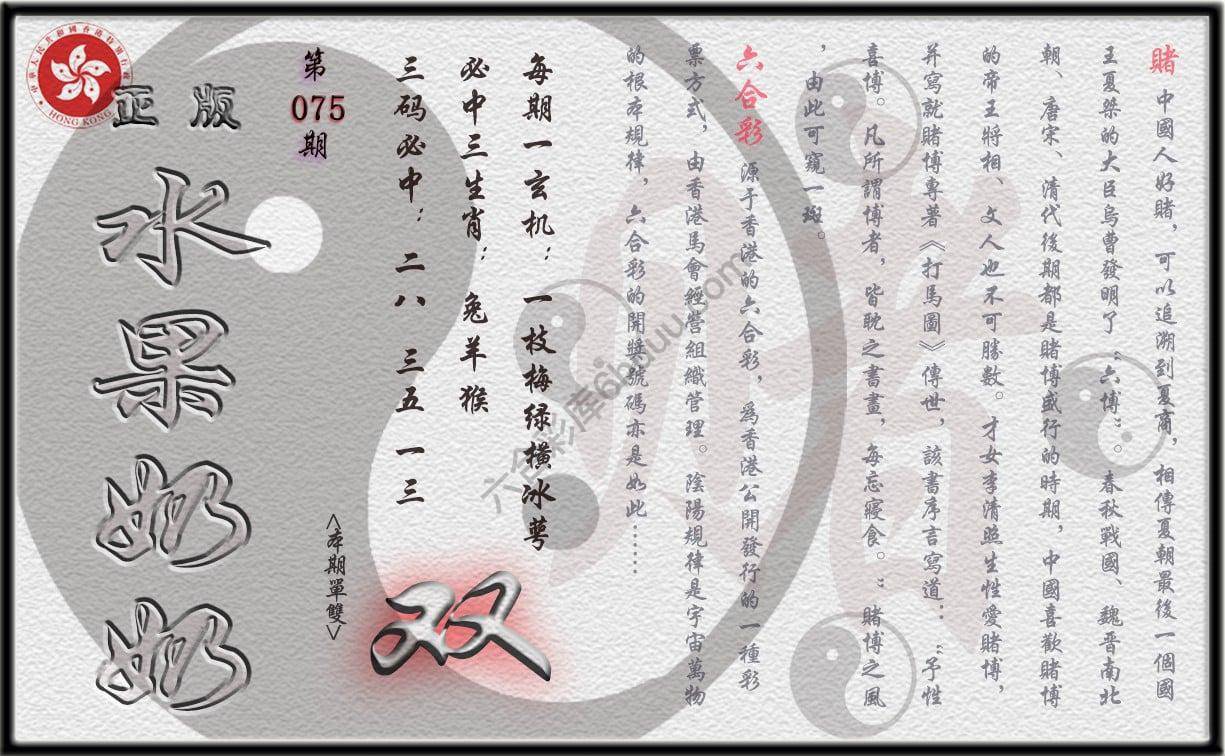 賭 中國人好賭，可以追溯到夏商，相傳夏朝最後一個國
王夏桀的大臣烏曹發明了“六博”。春秋戰國、魏晋南北
朝、唐宋、清代後期都是賭博盛行的時期，中國喜歡賭博
的帝王將相、文人也不可勝數。才女李清照生性愛賭博，
并寫就賭博專著《打馬圖》傳世，該書序言寫道：“予性
喜博。凡所謂博者，皆耽之書畫，每忘寢食。”賭博之風
，由此可窺一斑。
六合彩 源于香港的六合彩，爲香港公開發行的一種彩
票方式，由香港馬會經營組織管理。陰陽規律是宇宙萬物
的根本規律，六合彩的開獎號碼亦是如此……
每期一玄机：一枝梅绿横冰萼
必中三生肖：兔羊猴
三码必中：二八 三五 一三
第
075
期
<本期單雙>
双
正版
水果奶奶
中華人民共和國香港特別行政區
HONG KONG
六合彩库6huuu.com